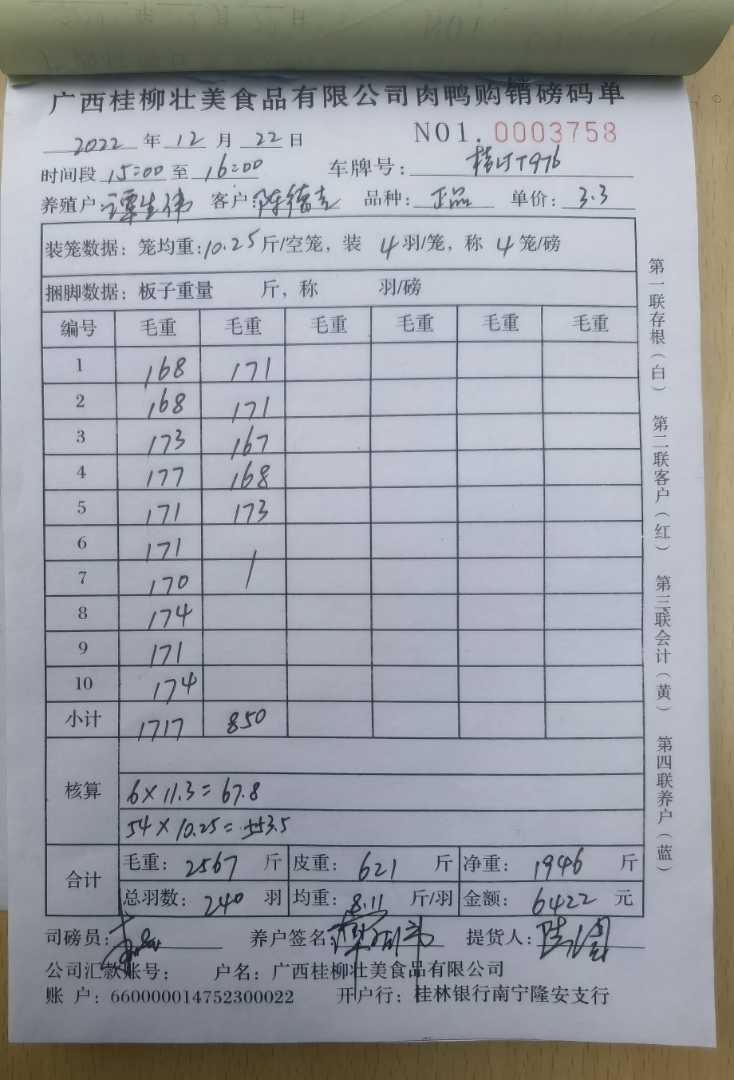 广西桂柳壮美食品有限公司肉鸭购销磅码单
2022 年 12 月 22 日 NO1.0003758
时间段 15:00 至 16:00 车牌号:
养殖户: 谭生伟 客户: 陈德 品种: 正品 单价: 3.3
装笼数据: 笼均重: 10.25 斤/空笼, 装 4 羽/笼, 称 4 笼/磅
捆脚数据: 板子重量 斤, 称 羽/磅
编号 毛重 毛重 毛重 毛重 毛重 毛重
1 168 171
2 168 171
3 173 167
4 177 168
5 171 173
6 171
7 170 /
8 174
9 171
10 174
小计 1717 850
核算
6×11.3=67.8
54×10.25=553.5
合计 毛重: 2567 斤 皮重: 621 斤 净重: 1946 斤
总羽数: 240 羽 均重: 8.11 斤/羽 金额: 6422 元
司磅员: 养户签名: 提货人:
公司汇款账号: 户名: 广西桂柳壮美食品有限公司
账 户: 660000014752300022 开户行: 桂林银行南宁隆安支行
第一联存根(白) 第二联客户(红) 第三联会计(黄) 第四联养户(蓝)